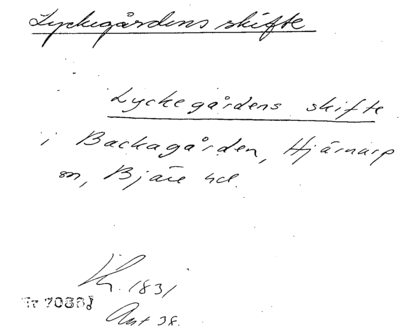 Lyckegårdens skifte
Lyckegårdens skifte
i Backagården, Hjärnarp
sn, Bjäre hd.
Lk. 1831
Akt 38.